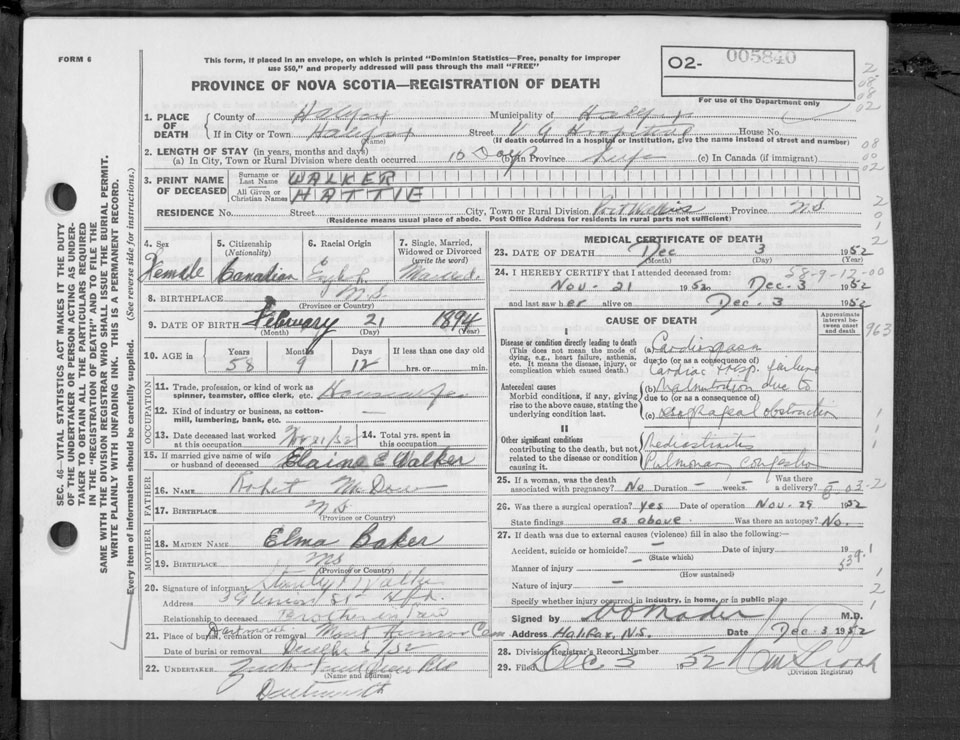 FORM 6
This form, if placed in an envelope, on which is printed "Dominion Statistics—Free, penalty for improper
use $50," and properly addressed will pass through the mail "FREE"
PROVINCE OF NOVA SCOTIA—REGISTRATION OF DEATH
O2- 005840
For use of the Department only
SEC. 46 VITAL STATISTICS ACT MAKES IT THE DUTY
OF THE UNDERTAKER OR PERSON ACTING AS UNDER-
TAKER TO OBTAIN ALL THE PARTICULARS REQUIRED
IN THE "REGISTRATION OF DEATH" AND TO FILE THE
SAME WITH THE DIVISION REGISTRAR WHO SHALL ISSUE THE BURIAL PERMIT.
WRITE PLAINLY WITH UNFADING INK. THIS IS A PERMANENT RECORD.
Every item of information should be carefully supplied. (See reverse side for instructions.)
1. PLACE OF DEATH
County of Halifax Municipality of Halifax
If in City or Town Halifax Street V G Hospital House No.
(Name) (If death occurred in a hospital or institution, give the name instead of street and number)
2. LENGTH OF STAY (in years, months and days)
(a) In City, Town or Rural Division where death occurred 10 Days (b) in Province Life (c) In Canada (if immigrant)
3. PRINT NAME OF DECEASED
Surname or Last Name WALKER
All Given or Christian Names HATTIE
RESIDENCE No. Street City, Town or Rural Division Port Wallis Province N.S.
(Residence means usual place of abode. Post Office Address for residents in rural parts not sufficient)
4. Sex Female
5. Citizenship (Nationality) Canadian
6. Racial Origin English
7. Single, Married, Widowed or Divorced (write the word) Married.
8. BIRTHPLACE N S
(Province or Country)
9. DATE OF BIRTH February 21 1894
(Month) (Day) (Year)
10. AGE in Years 58 Months 9 Days 12 If less than one day old hrs. or min.
OCCUPATION
11. Trade, profession, or kind of work as
spinner, teamster, office clerk, etc. Housewife
12. Kind of industry or business, as cotton-
mill, lumbering, bank, etc. -
13. Date deceased last worked at this occupation Nov 21/52 14. Total yrs. spent in this occupation
15. If married give name of wife
or husband of deceased Elaine C Walker
FATHER
16. NAME Robert McDow
17. BIRTHPLACE N S
(Province or Country)
MOTHER
18. MAIDEN NAME Elma Baker
19. BIRTHPLACE N S
(Province or Country)
20. Signature of informant Stanley Walker
Address St
Relationship to deceased Brother in law
21. Place of burial, cremation or removal Dartmouth Mount Cem
Date of burial or removal Dec 5/52
22. UNDERTAKER
(Name and address)
Dartmouth
MEDICAL CERTIFICATE OF DEATH
23. DATE OF DEATH Dec 3 1952
(Month) (Day) (Year)
58-9-12-00
24. I HEREBY CERTIFY that I attended deceased from:
Nov. 21 1952 Dec. 3 1952
and last saw her alive on Dec. 3 1952
CAUSE OF DEATH
Approximate interval between onset and death
I
Disease or condition directly leading to death
(This does not mean the mode of
dying, e.g., heart failure, asthenia,
etc. It means the disease, injury, or
complication which caused death.)
(a) Cardiospasm
due to (or as a consequence of)
Cardiac & resp. failure
Antecedent causes
Morbid conditions, if any, giving
rise to the above cause, stating the
underlying condition last.
(b) Malnutrition due to
due to (or as a consequence of)
(c) esophageal obstruction
II
Other significant conditions
contributing to the death, but not
related to the disease or condition
causing it.
Mediastinitis
Pulmonary congestion
25. If a woman, was the death
associated with pregnancy? No Duration - weeks. Was there a delivery? -
8 03-2
26. Was there surgical operation? yes Date of operation Nov. 29 1952
State findings as above. Was there an autopsy? No.
27. If death was due to external causes (violence) fill in also the following:-
Accident, suicide or homicide? - Date of injury 19
(State which)
Manner of injury -
(How sustained)
Nature of injury -
Specify whether injury occurred in industry, in home, or in public place
539.1
Signed by M.D.
Address Halifax, N.S. Date Dec. 3 1952
28. Division Registrar's Record Number
29. Filed Dec 5 1952
(Division Registrar)
2
08
08
02
08
00
02
2
0
1
2
963
1
1
1
1
2
1